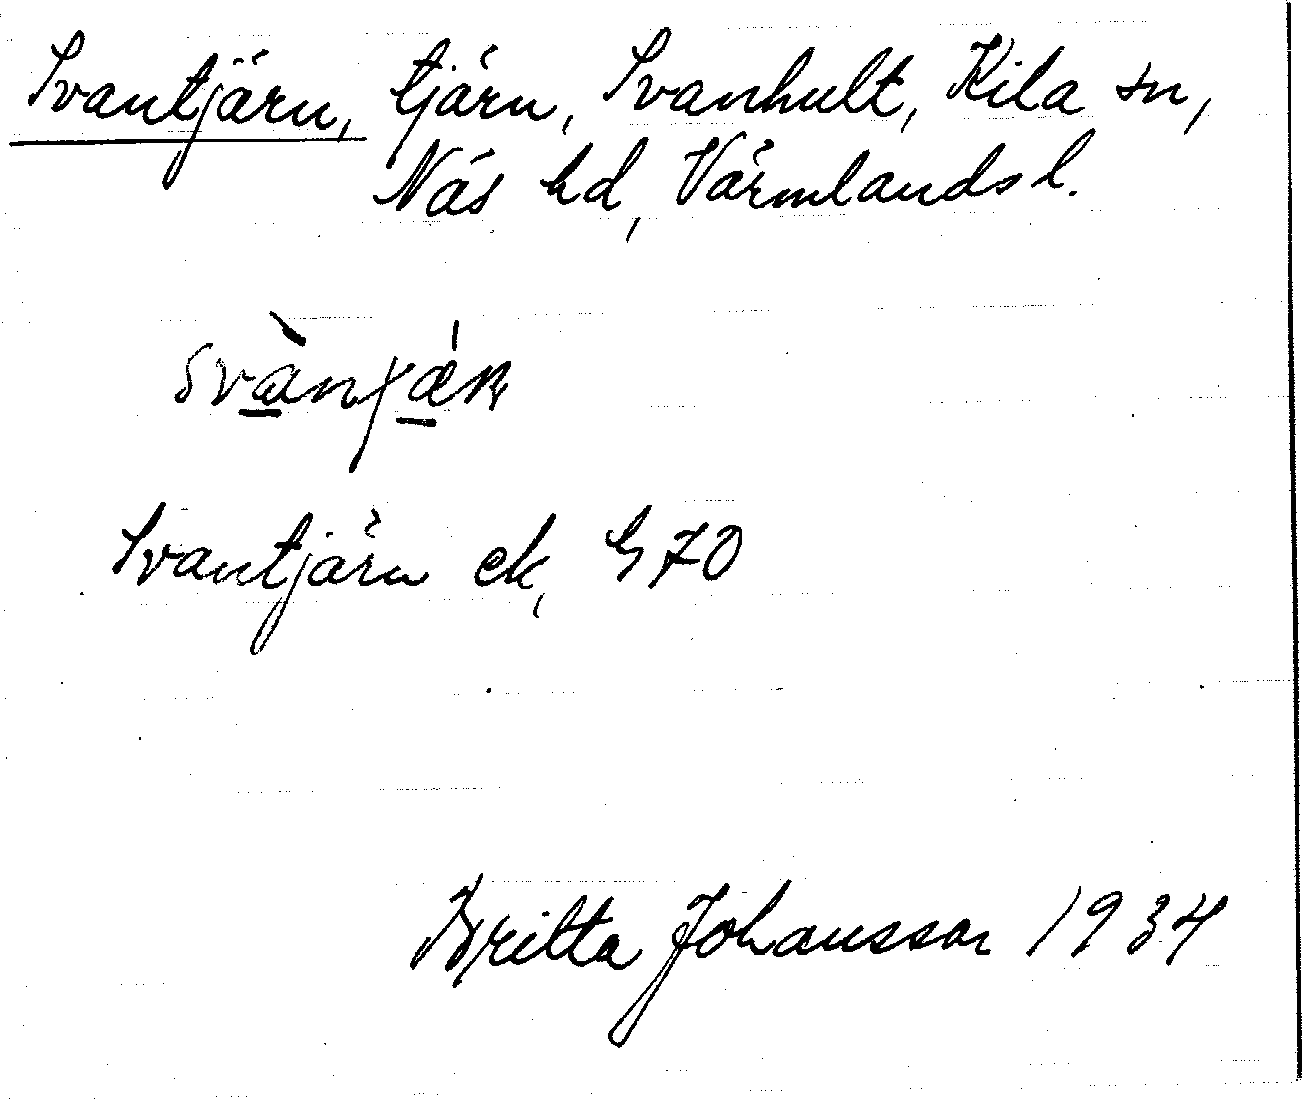 Svantjärn, tjärn, Svanhult, Kila sn,
Näs hd, Värmlands l.
Svantjärn ek, G 70
Britta Johansson 1934